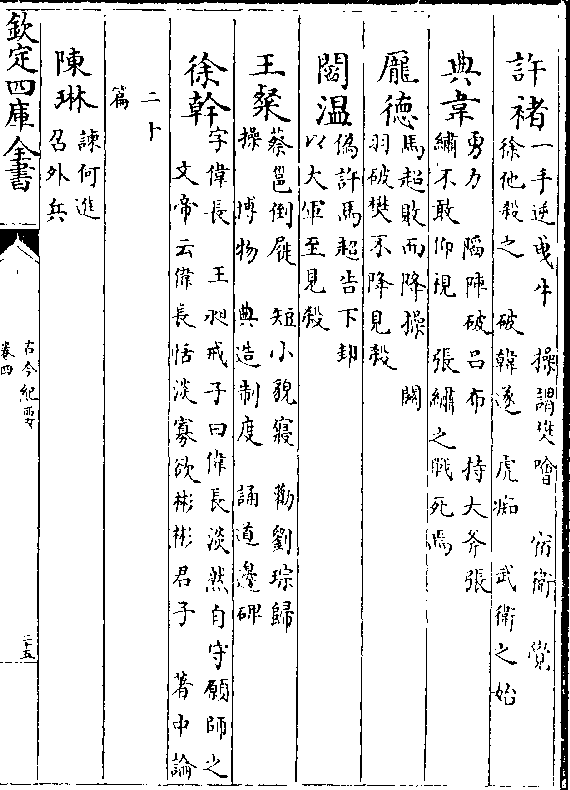 許褚
一手逆曳牛 操謂樊噲 宿衛 覺
徐他殺之 破韓遂 虎痴 武衛之始
典韋
勇力 陷陳破呂布 持大斧張
繡不敢仰視 張繡之戰死焉
龎德
馬超敗而降操 關
羽破樊不降見殺
閻温
偽許馬超告下
以大軍至見殺
王粲
蔡邕倒屣 短小貌寢 勸劉琮歸
操 博物 典造制度 誦道邊碑
徐幹
字偉長 王昶戒子曰偉長淡然自守願師之
文帝云偉長恬淡寡欲彬彬君子 著中論
二十
篇
陳琳
諫何進
召外兵
欽定四庫全書
古今紀要
卷四
二十五